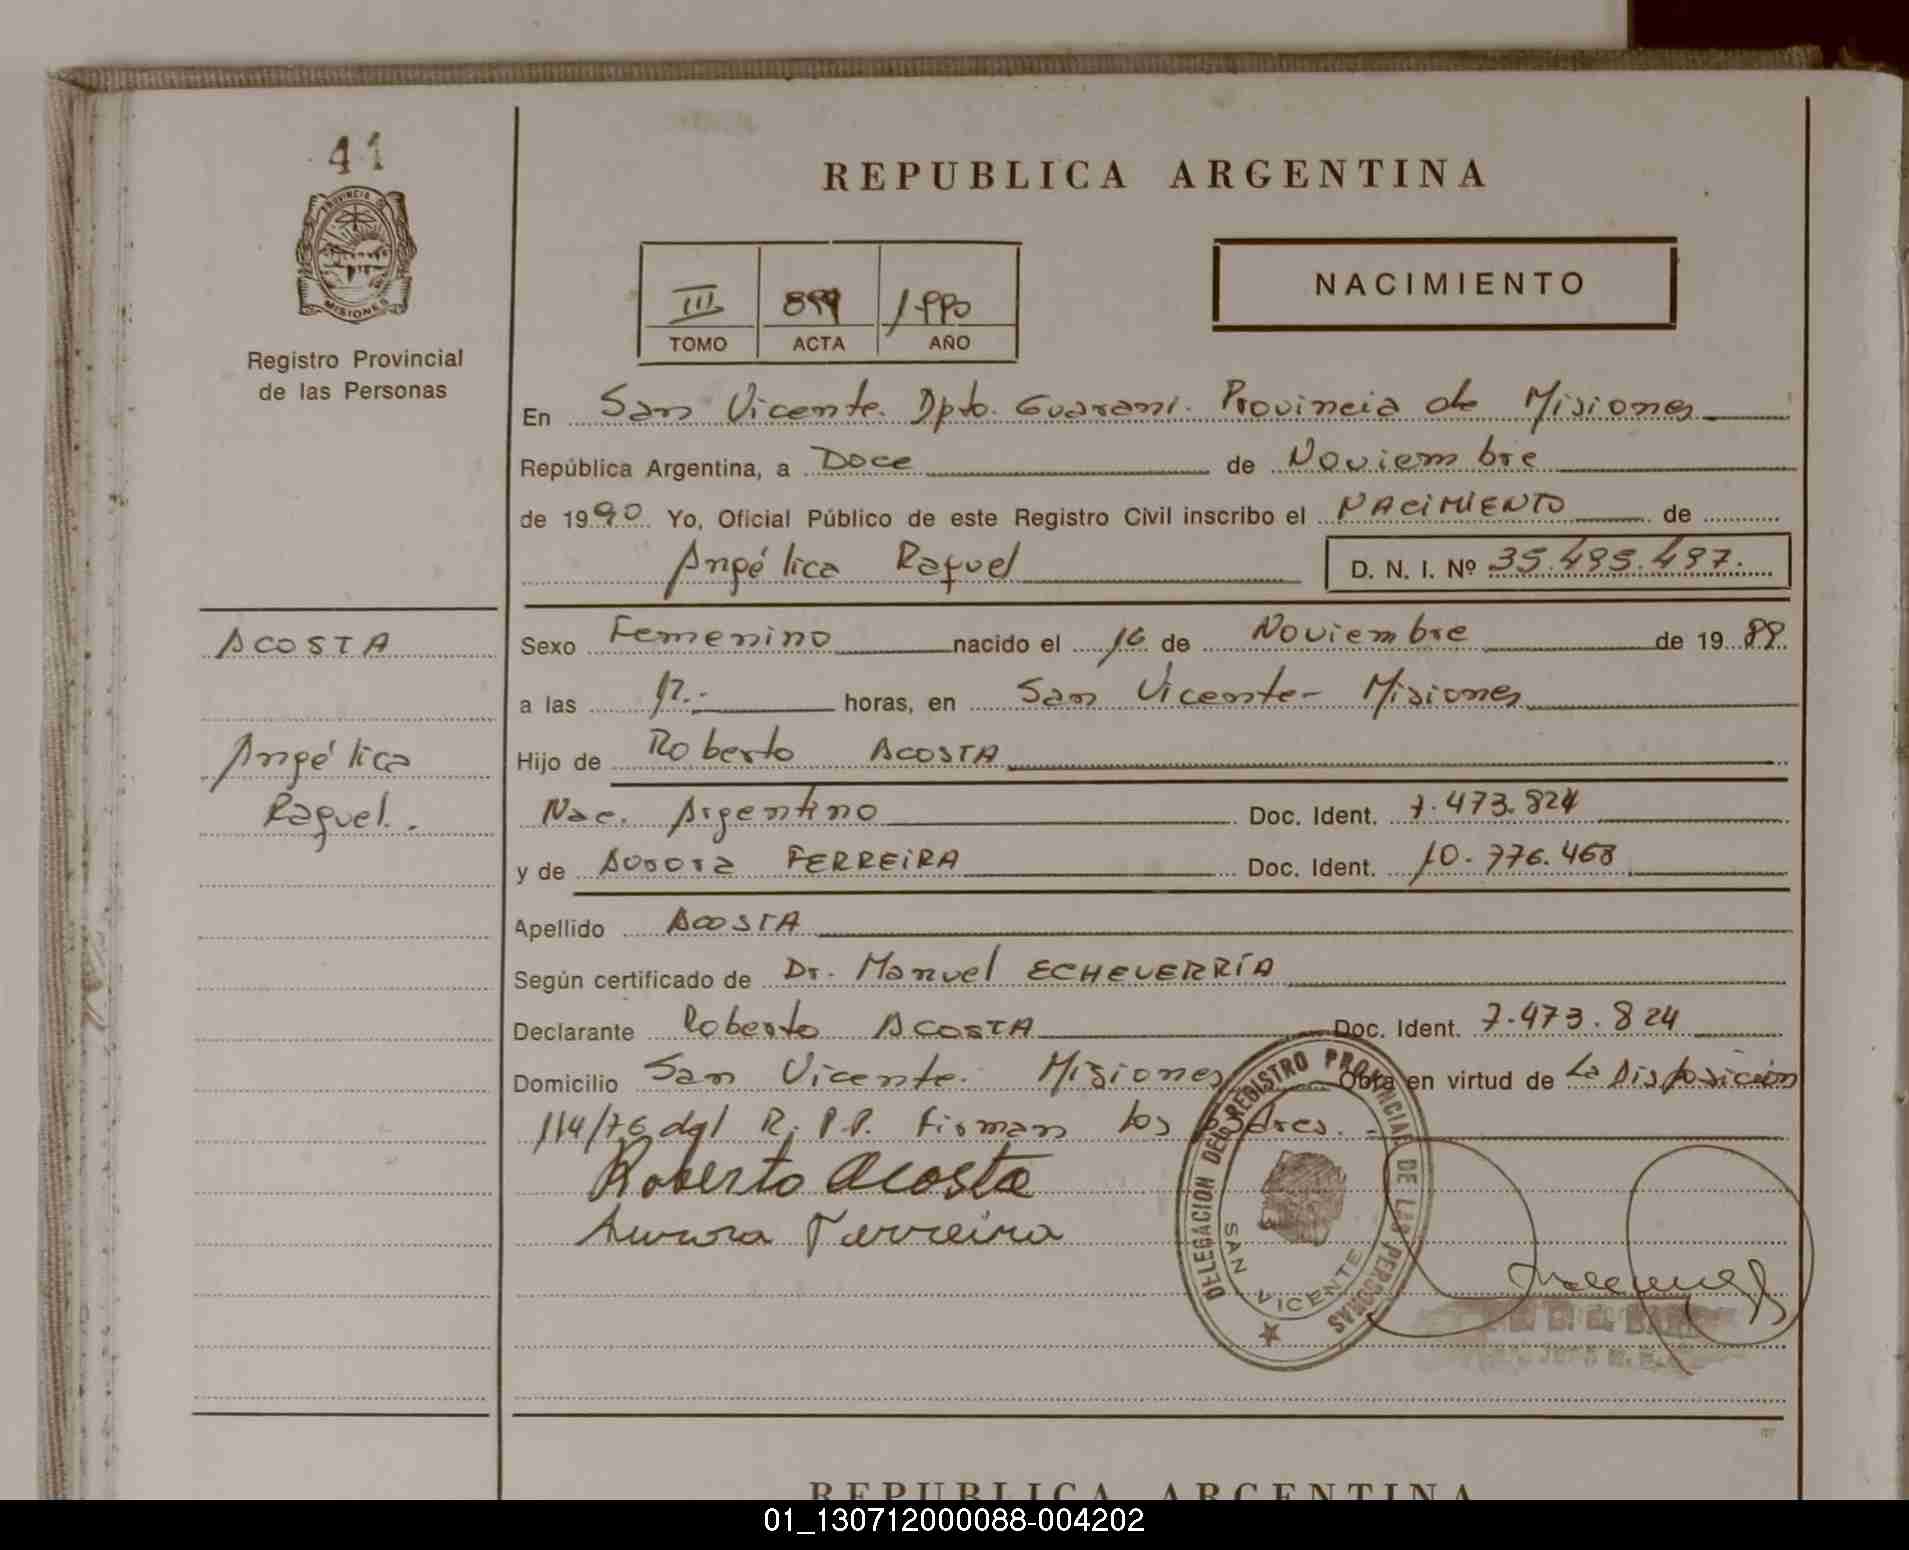 41
PROVINCIA DE
MISIONES
Registro Provincial
de las Personas
REPUBLICA ARGENTINA
NACIMIENTO
III 899 1990
TOMO ACTA AÑO
En San Vicente. Dpto. Guaraní. Provincia de Misiones
República Argentina, a Doce de Noviembre
de 1990. Yo, Oficial Público de este Registro Civil inscribo el NACIMIENTO de
Angélica Raquel D. N. I. Nº 35.495.497.
ACOSTA
Angélica
Raquel.
Sexo Femenino nacido el 16 de Noviembre de 19
a las horas, en San Vicente - Misiones
Hijo de Roberto ACOSTA
Nac. Argentino Doc. Ident. 7.473.824
y de Aurora FERREIRA Doc. Ident. 10.776.468
Apellido ACOSTA
Según certificado de Dr. Manuel ECHEVERRÍA
Declarante Roberto ACOSTA Doc. Ident. 7.473.824
Domicilio San Vicente. Misiones Obra en virtud de La Disposición
114/76 del R. P.P. Firman los Padres.
Roberto Acosta
Aurora Ferreira
DELEGACION DEL REGISTRO PROVINCIAL DE LAS PERSONAS
SAN VICENTE
REPUBLICA ARGENTINA
01_130712000088-004202